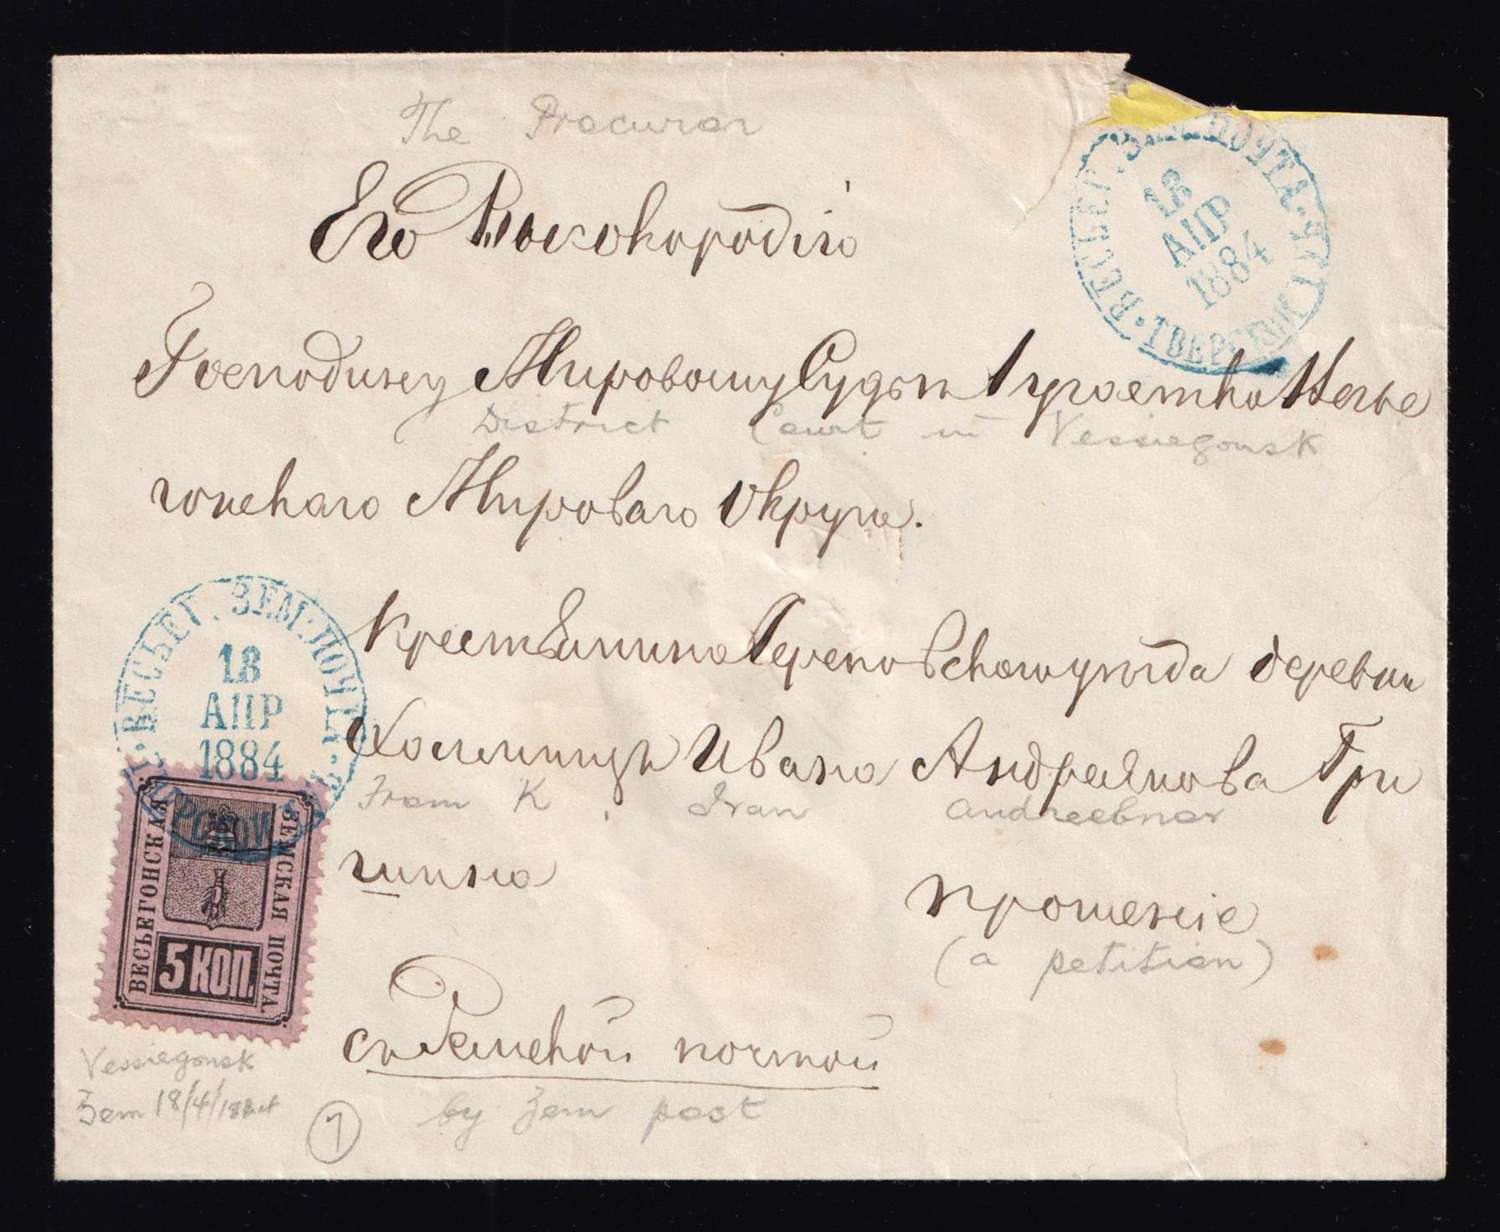 The Procuror
Его Высокородію
ВЕСЬЕГ. ЗЕМ. ПОЧТА
18
АПР
1884
Господину Мировому Судьѣ 1 участка Весье
District Court in Vessiegonsk
гонскаго Мироваго Округа.
ВЕСЬЕГ. ЗЕМ. ПОЧТА
18
АПР
1884
Крестьянина Череповскаго уѣзда деревни
Ивана Андреянова Гри
From K. Ivan Andreebnor
шина
прошеніе
(a petition)
ВЕСЬЕГОНСКАЯ ЗЕМСКАЯ ПОЧТА.
5 КОП.
съ Земской почтой
Vessiegonsk
Zem 18/4/1884
by Zem post
7